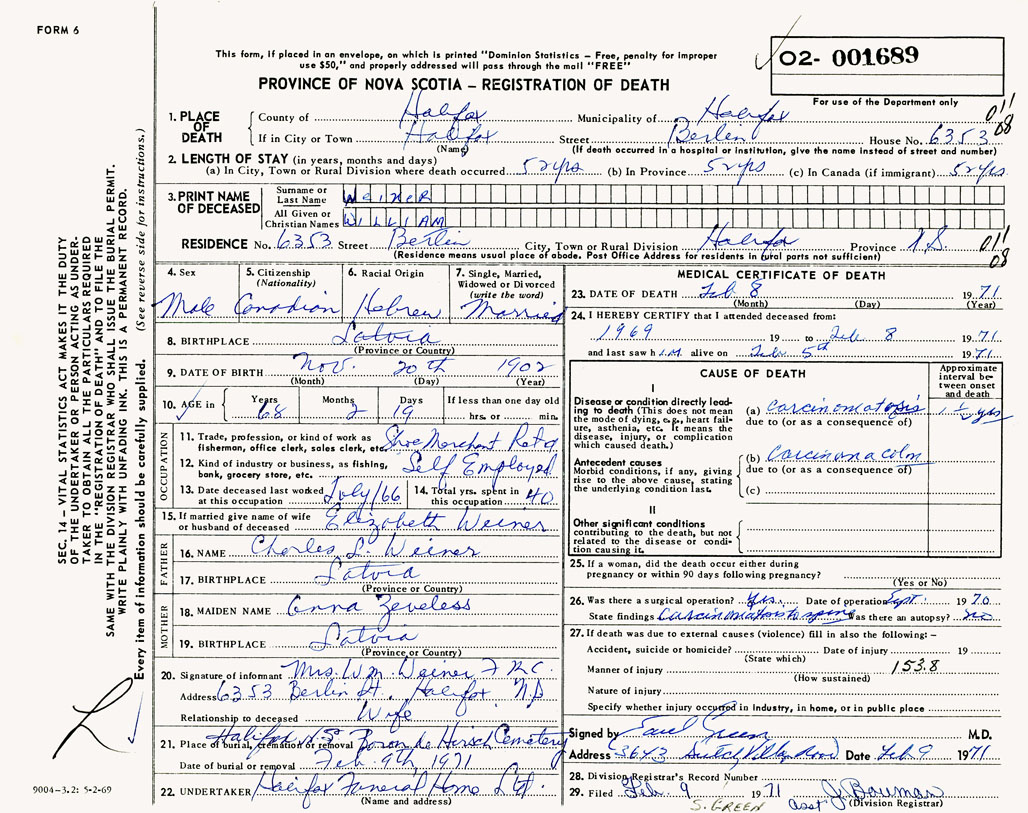 FORM 6
This form, if placed in an envelope, on which is printed "Dominion Statistics – Free, penalty for improper
use $50," and properly addressed will pass through the mail "FREE"
02- 001689
PROVINCE OF NOVA SCOTIA – REGISTRATION OF DEATH
For use of the Department only
1. PLACE OF DEATH
County of Halifax Municipality of Halifax 011
08
If in City or Town Halifax Street Berlin House No. 6353
(Name) (If death occurred in a hospital or institution, give the name instead of street and number)
2. LENGTH OF STAY (in years, months and days)
(a) In City, Town or Rural Division where death occurred 52 yrs (b) In Province 52 yrs (c) In Canada (if immigrant) 52 yrs
3. PRINT NAME OF DECEASED
Surname or Last Name WEINER
All Given or Christian Names WILLIAM
RESIDENCE No. 6353 Street Berlin City, Town or Rural Division Halifax Province N.S. 011
08
(Residence means usual place of abode. Post Office Address for residents in rural parts not sufficient)
4. Sex
Male
5. Citizenship
(Nationality)
Canadian
6. Racial Origin
Hebrew
7. Single, Married,
Widowed or Divorced
(write the word)
Married
8. BIRTHPLACE Latvia
(Province or Country)
9. DATE OF BIRTH Nov. 20th 1902
(Month) (Day) (Year)
10. AGE in Years 68 Months 2 Days 19 If less than one day old
hrs. or min.
OCCUPATION
11. Trade, profession, or kind of work as
fisherman, office clerk, sales clerk, etc. Shoe Merchant Retd
12. Kind of industry or business, as fishing,
bank, grocery store, etc. Self Employed
13. Date deceased last worked
at this occupation July/66
14. Total yrs. spent in
this occupation 40
15. If married give name of wife
or husband of deceased Elizabeth Weiner
FATHER
16. NAME Charles L. Weiner
17. BIRTHPLACE Latvia
(Province or Country)
MOTHER
18. MAIDEN NAME Anna Zeveless
19. BIRTHPLACE Latvia
(Province or Country)
20. Signature of informant Mrs. Wm Weiner
Address 6353 Berlin St., Halifax, NS
Relationship to deceased Wife
21. Place of burial, cremation or removal Halifax N.S. Baron de Hirsch Cemetery
Date of burial or removal Feb. 9th, 1971
22. UNDERTAKER Halifax Funeral Home Ltd.
(Name and address)
MEDICAL CERTIFICATE OF DEATH
23. DATE OF DEATH Feb 8 1971
(Month) (Day) (Year)
24. I HEREBY CERTIFY that I attended deceased from:
1969 19 to Feb 8 1971
and last saw h im alive on Feb. 5th 1971
CAUSE OF DEATH
Approximate interval between onset and death
I
Disease or condition directly leading to death (This does not mean the mode of dying, e.g., heart failure, asthenia, etc. It means the disease, injury, or complication which caused death.)
(a) Carcinomatosis 1½ yrs
due to (or as a consequence of)
Antecedent causes
Morbid conditions, if any, giving rise to the above cause, stating the underlying condition last.
(b) Carcinoma colon
due to (or as a consequence of)
(c)
II
Other significant conditions
contributing to the death, but not related to the disease or condition causing it.
25. If a woman, did the death occur either during
pregnancy or within 90 days following pregnancy?
(Yes or No)
26. Was there a surgical operation? Yes. Date of operation Sept. 1970
State findings Carcinomatosis Was there an autopsy? no
27. If death was due to external causes (violence) fill in also the following: –
Accident, suicide or homicide? Date of injury 19
(State which)
Manner of injury 153.8
(How sustained)
Nature of injury
Specify whether injury occurred in industry, in home, or in public place
Signed by Paul Green M.D.
Address 3643 Dutch Village Road Date Feb. 9 1971
28. Division Registrar's Record Number
29. Filed Feb. 9 1971 J. Bauman
S. GREEN asst (Division Registrar)
SEC. 14 – VITAL STATISTICS ACT MAKES IT THE DUTY
OF THE UNDERTAKER OR PERSON ACTING AS UNDER-
TAKER TO OBTAIN ALL THE PARTICULARS REQUIRED
IN THE "REGISTRATION OF DEATH" AND TO FILE THE
SAME WITH THE DIVISION REGISTRAR WHO SHALL ISSUE THE BURIAL PERMIT.
WRITE PLAINLY WITH UNFADING INK. THIS IS A PERMANENT RECORD.
Every item of information should be carefully supplied. (See reverse side for instructions.)
9004-3.2: 5-2-69